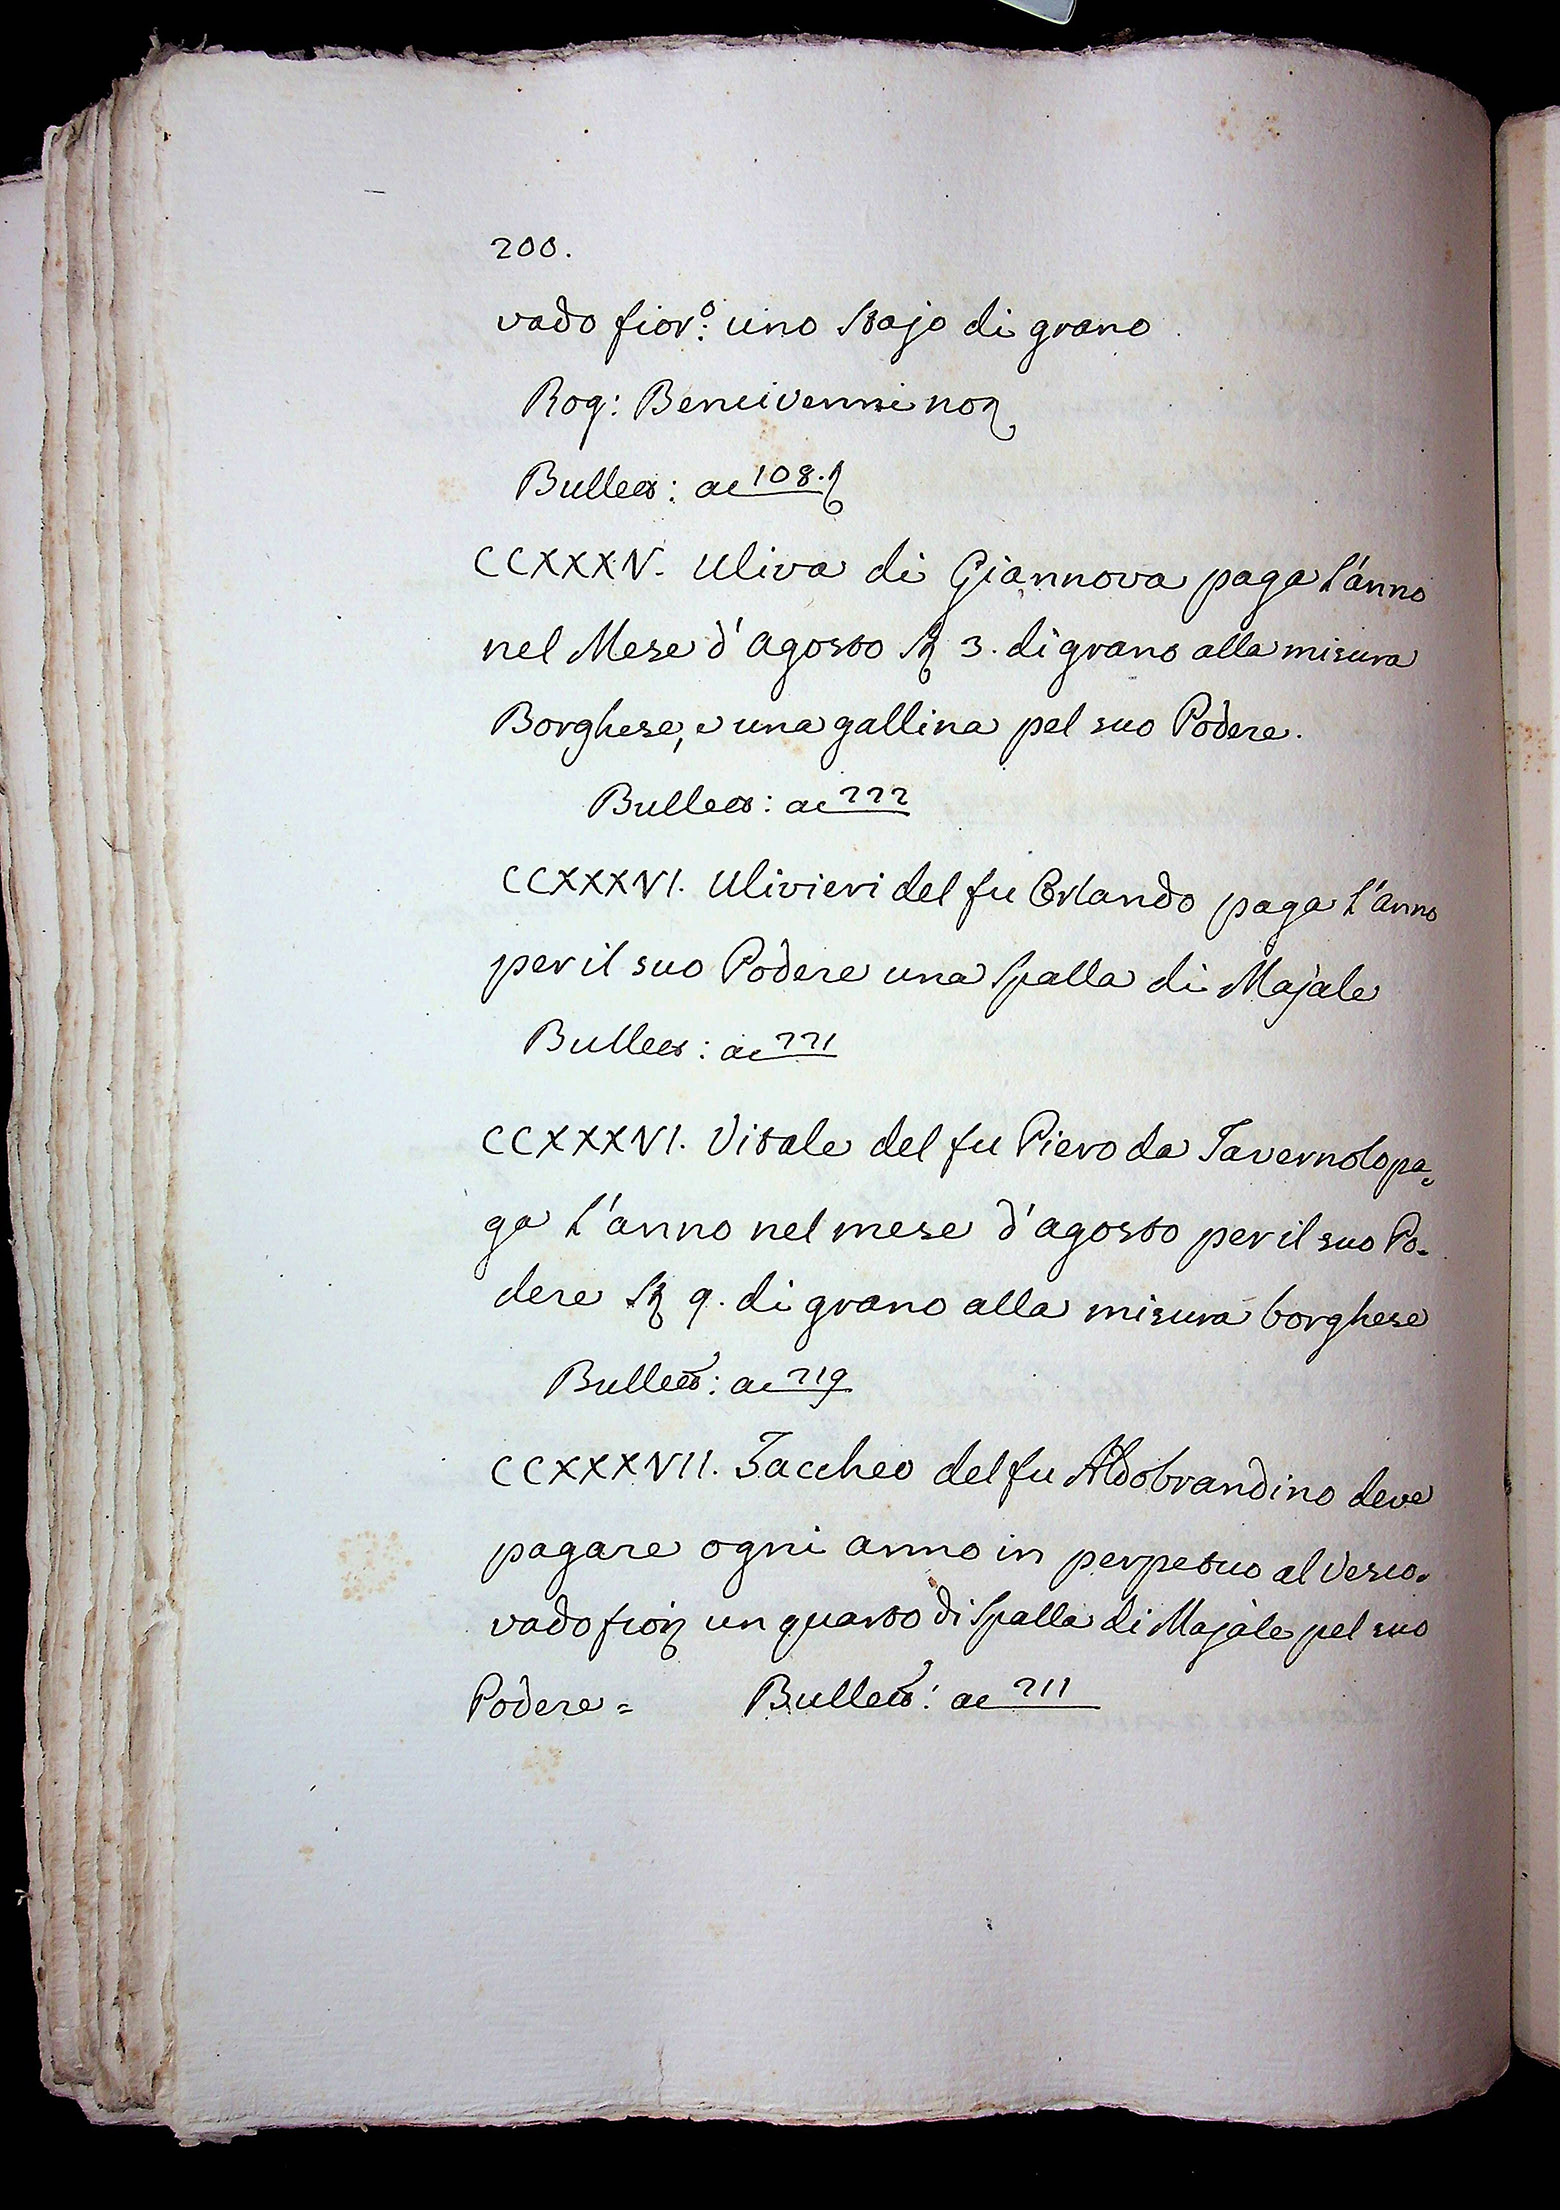 200.
vado fior.o: uno Stajo di grano
Rog: Bencivenni no
Bullett: ac 108.
CCXXXV. Uliva di Giannova paga l'anno
nel Mese d'agosto St 3. di grano alla misura
Borghese, e una gallina pel suo Podere.
Bullett: ac 222
CCXXXVI. Ulivieri del fu Orlando paga l'anno
per il suo Podere una Spalla di Majale
Bullett: ac 221
CCXXXVI. Vitale del fu Piero da Tavernolo pa=
ga l'anno nel mese d'agosto per il suo Po=
dere St 9. di grano alla misura borghese
Bullett: ac 219
CCXXXVII. Zaccheo del fu Aldobrandino deve
pagare ogni anno in perpetuo al Vesco=
vado fior un quarto di Spalla di Majale pel suo
Podere= Bullett: ac 211